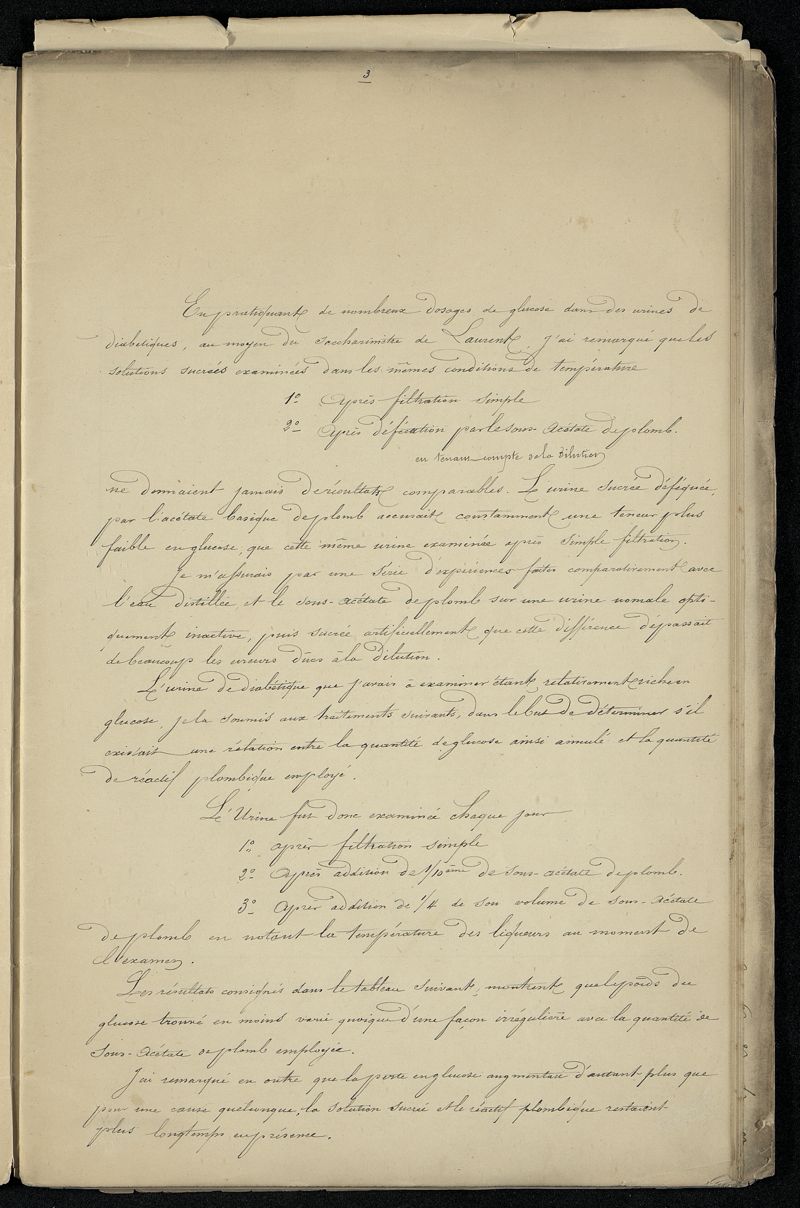 3
En pratiquant de nombreux dosages de glucose dans des urines de
diabétiques, au moyen du saccharimètre de Laurent, j'ai remarqué que les
solutions sucrées examinées dans les mêmes conditions de température
1º Après filtration simple
2º Après défécation par le sous-Acétate de plomb.
en tenant compte de la dilution
ne donnaient jamais de résultats comparables. L'urine sucrée déféquée,
par l'acétate basique de plomb accusait constamment une teneur plus
faible en glucose, que cette même urine examinée après simple filtration.
Je m'assurais par une série d'expériences faites comparativement avec
l'eau distillée, et le sous-acétate de plomb sur une urine nomale opti-
quement inactive, puis sucrée artificiellement que cette différence dépassait
de beaucoup les erreurs dûes à la dilution.
L'urine de diabétique que j'avais à examiner étant relativement riche en
glucose, je la soumis aux traitements suivants, dans le but de déterminer s'il
existait une rélation entre la quantité de glucose ainsi annulé et la quantité
de réactif plombique employé.
L'Urine fut donc examinée chaque jour
1º après filtration simple
2º Après addition de 1/10ème de sous-acétate de plomb.
3º Après addition de 1/4 de son volume de sous-acétate
de plomb en notant la température des liqueurs au moment de
l'examen.
Les résultats consignés dans le tableau suivant, montrent que le poids du
glucose trouvé en moins varie quoique d'une façon irrégulière avec la quantité de
sous-acétate de plomb employée.
J'ai remarqué en outre que la perte en glucose augmentait d'autant plus que
pour une cause quelconque, la solution sucrée et le réactif plombique restaient
plus longtemps en présence.